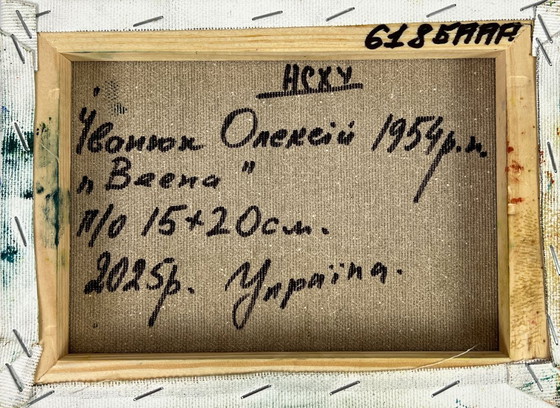 6185ААА
НСХУ
Іванюк Олексій 1954р.н.
„Весна"
п/о 15+20см.
2025р. Україна.